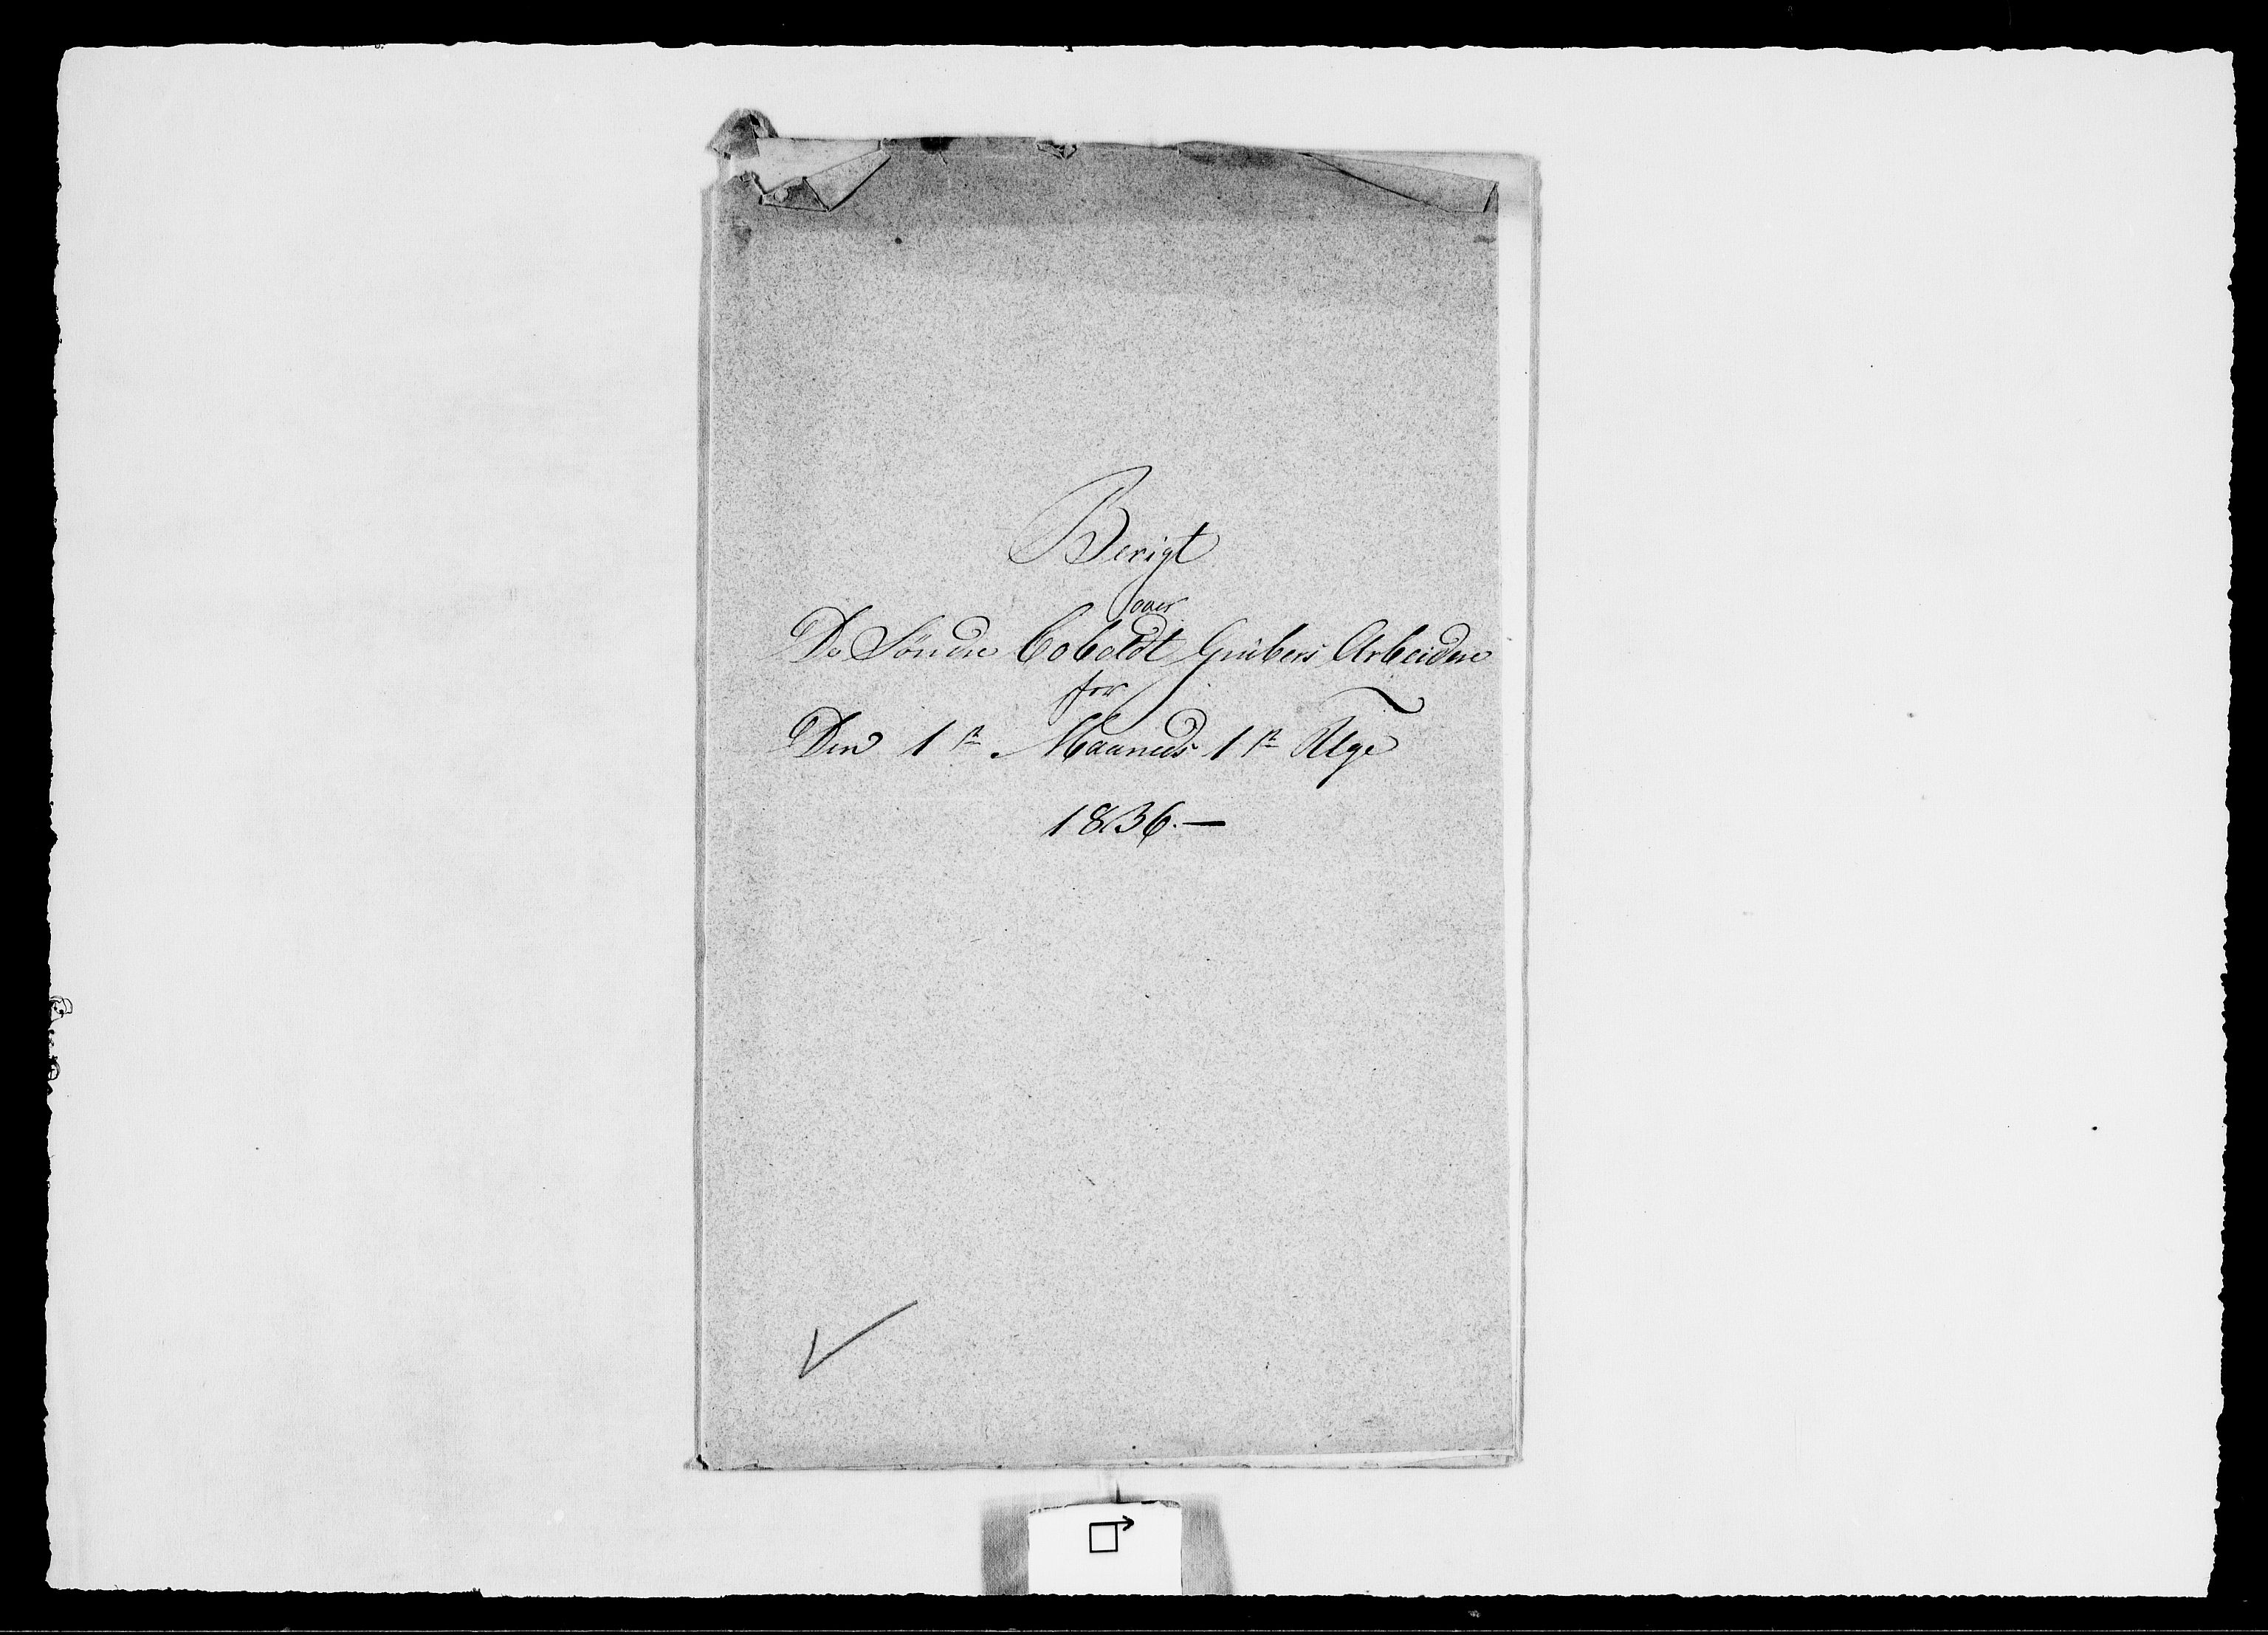 Berigt
over
De Søndre Coboldt Grubers Arbeiden
for
Den 1ste Maaneds 1ste Uge
1836.—